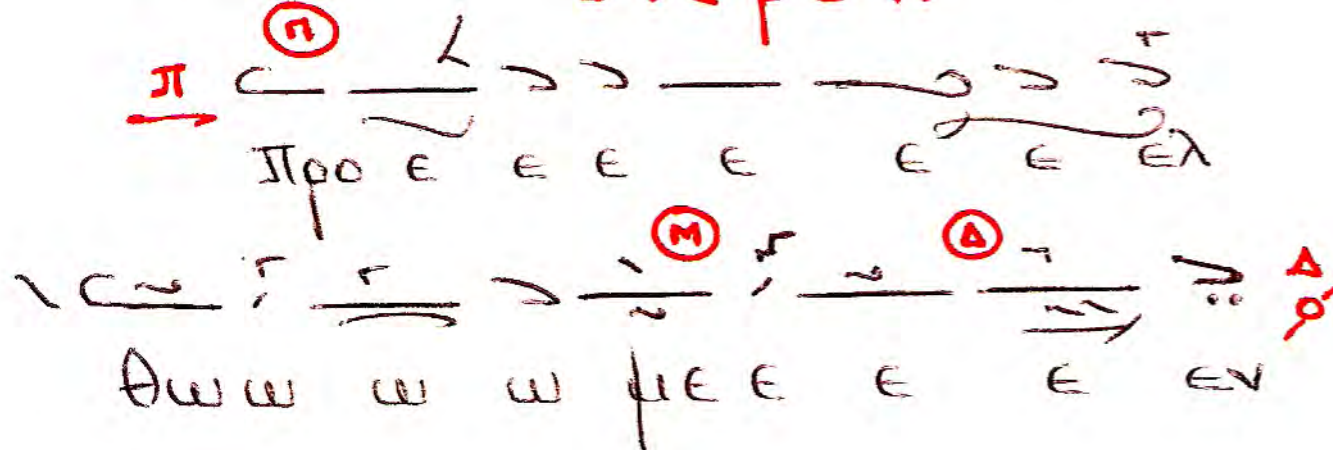 π Π
Προ ε ε ε ε ε ε ελ
Μ Δ Δ
θω ω ω ω με ε ε ε εν